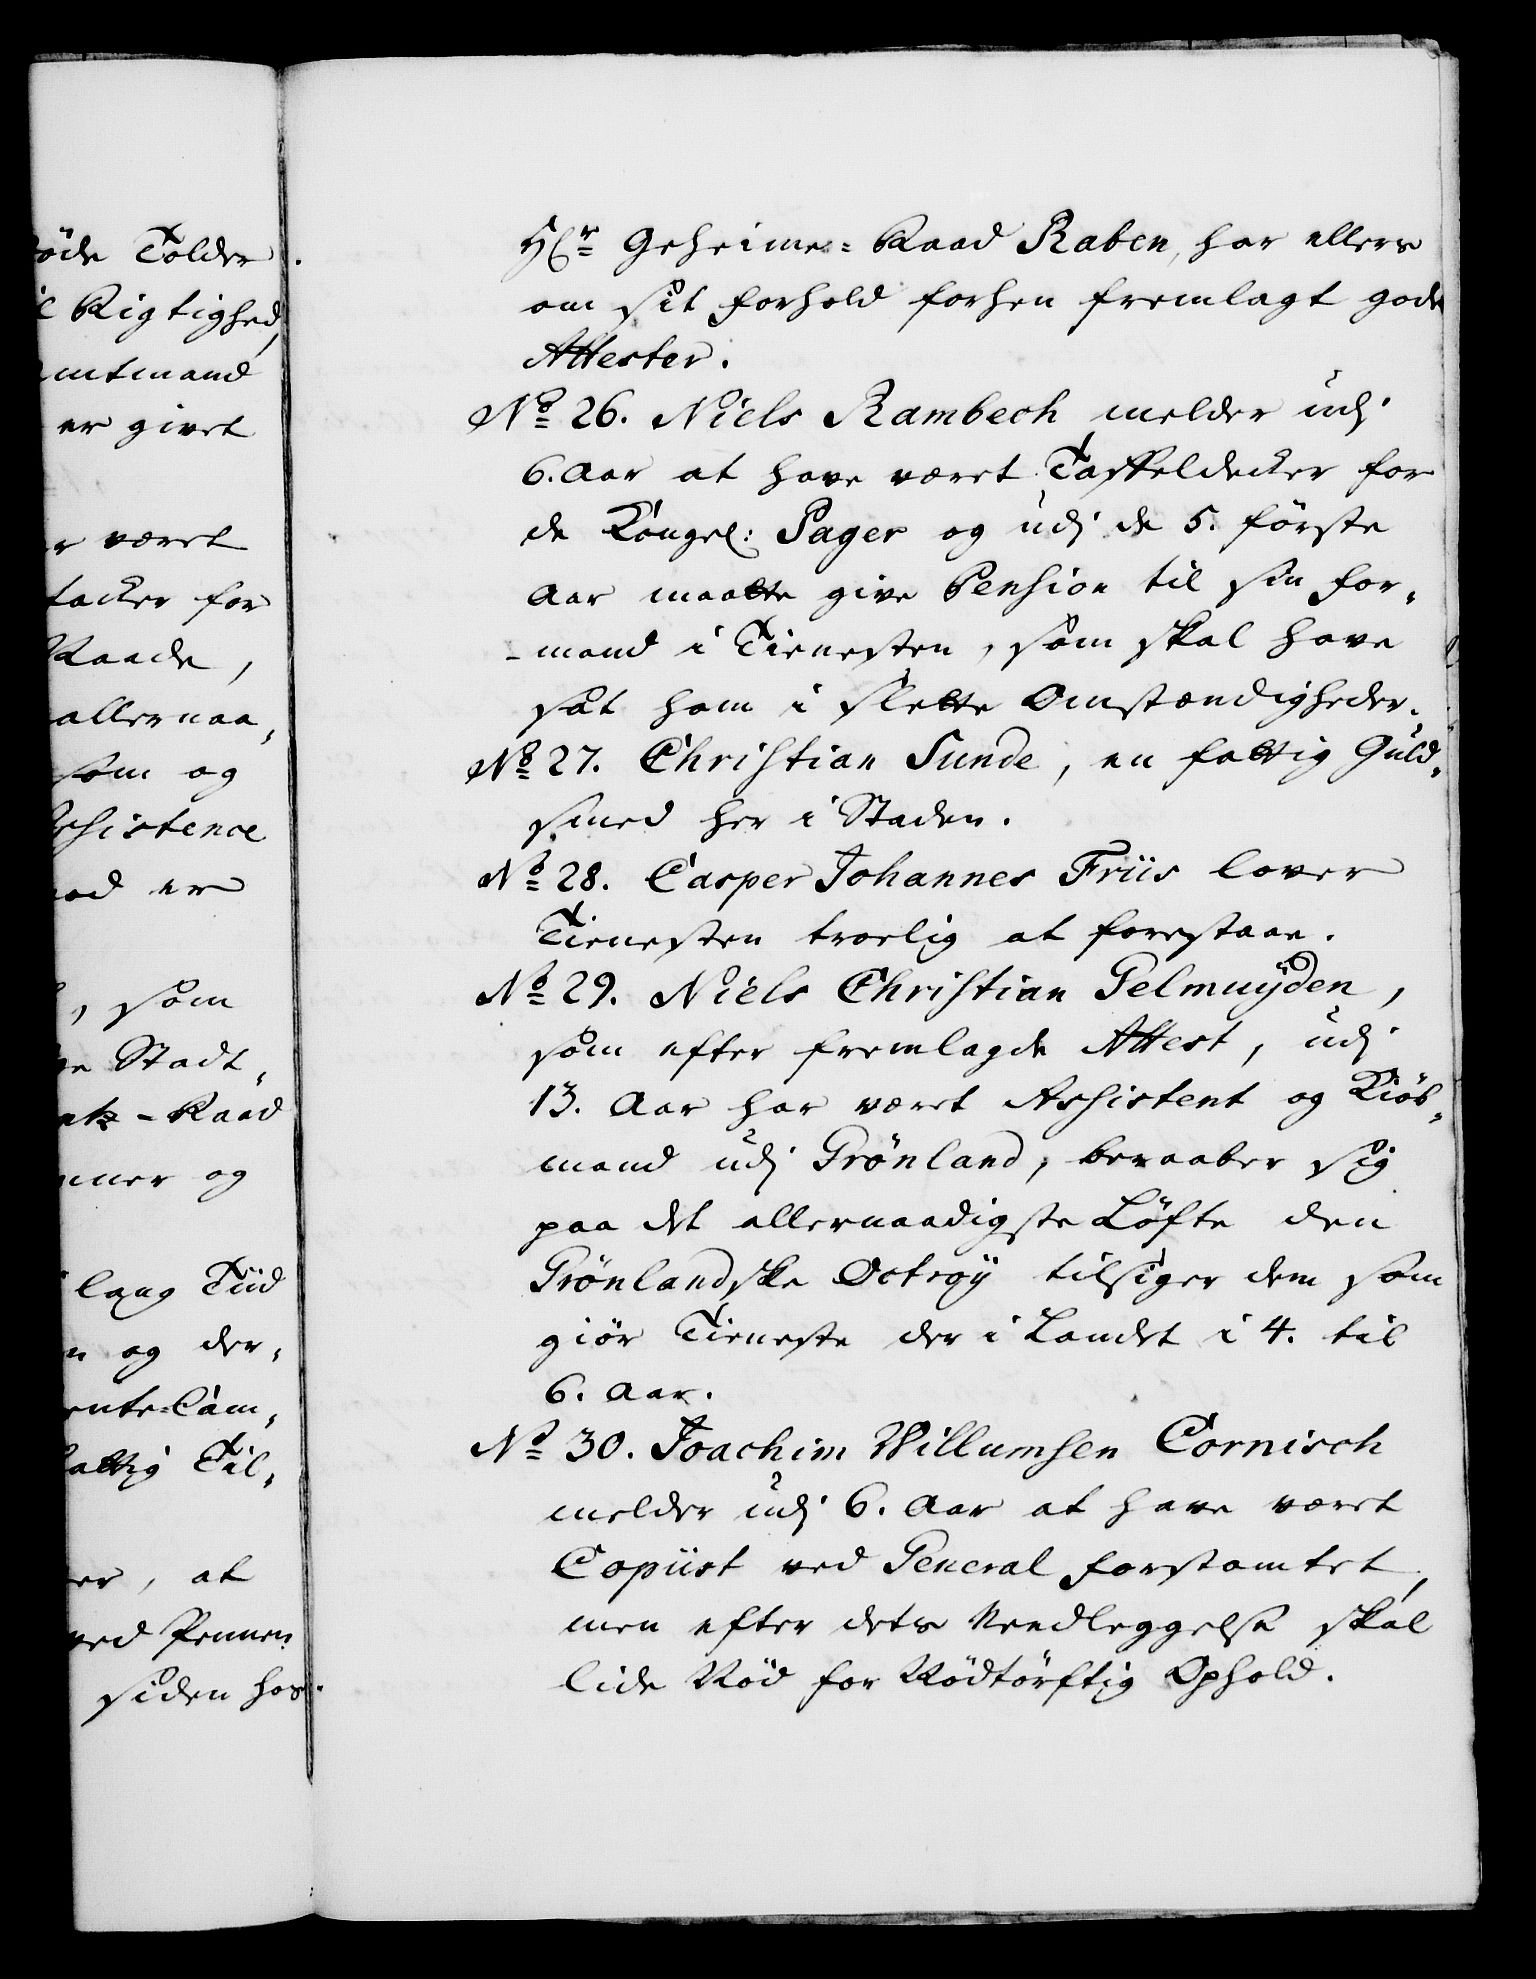 öde Tolder
l Rigtighed,
mtmand
er givet
r været
tacker for
Raade,
allernaa„
som og
sistence
od er
, som
e Stadt„
atz-Raad
mer og
lang Tiid
n og der„
ente-Cam„
fattig Til„
er, at
ved Pennen
siden hos
Hr Geheime-Raad Raben, har ellers
om sit Forhold forhen fremlagt gode
Attester.
No 26. Niels Rambech melder udj
6. Aar at have været Taffeldecker for
de Kongel: Pager og udj de 5. første
Aar maatte give Pension til sin For„
-mand i Tienesten, som skal have
sat ham i slette Omstændigheder.
No 27. Christian Sunde, en fattig Guld„
smed her i Staden.
No 28. Casper Johannes Friis lover
Tienesten troelig at forestaae.
No 29. Niels Christian Gelmuÿden,
som efter fremlagde Attest, udj
13. Aar har været Assistent og Kiöb„
mand udj Grönland, beraaber sig
paa det allernaadigste Löfte den
Grönlandske Octroÿ tilsiger dem som
giör Tieneste der i Landet i 4. til
6. Aar.
No 30. Joachim Willumsen Cornisch
melder udj 6. Aar at have været
Copiist ved General Forstamtet,
men efter dets Needleggelse skal
lide Nöd for Nödtörftig Ophold.